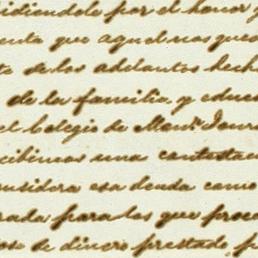 idiendole por el honor y
enta que aquel nos que
te de los adelantos hech
de la familia y educ
el Colegio de
cibimos una contestac
nsidera esa deuda como
rada para los que proce
os de dinero prestado p